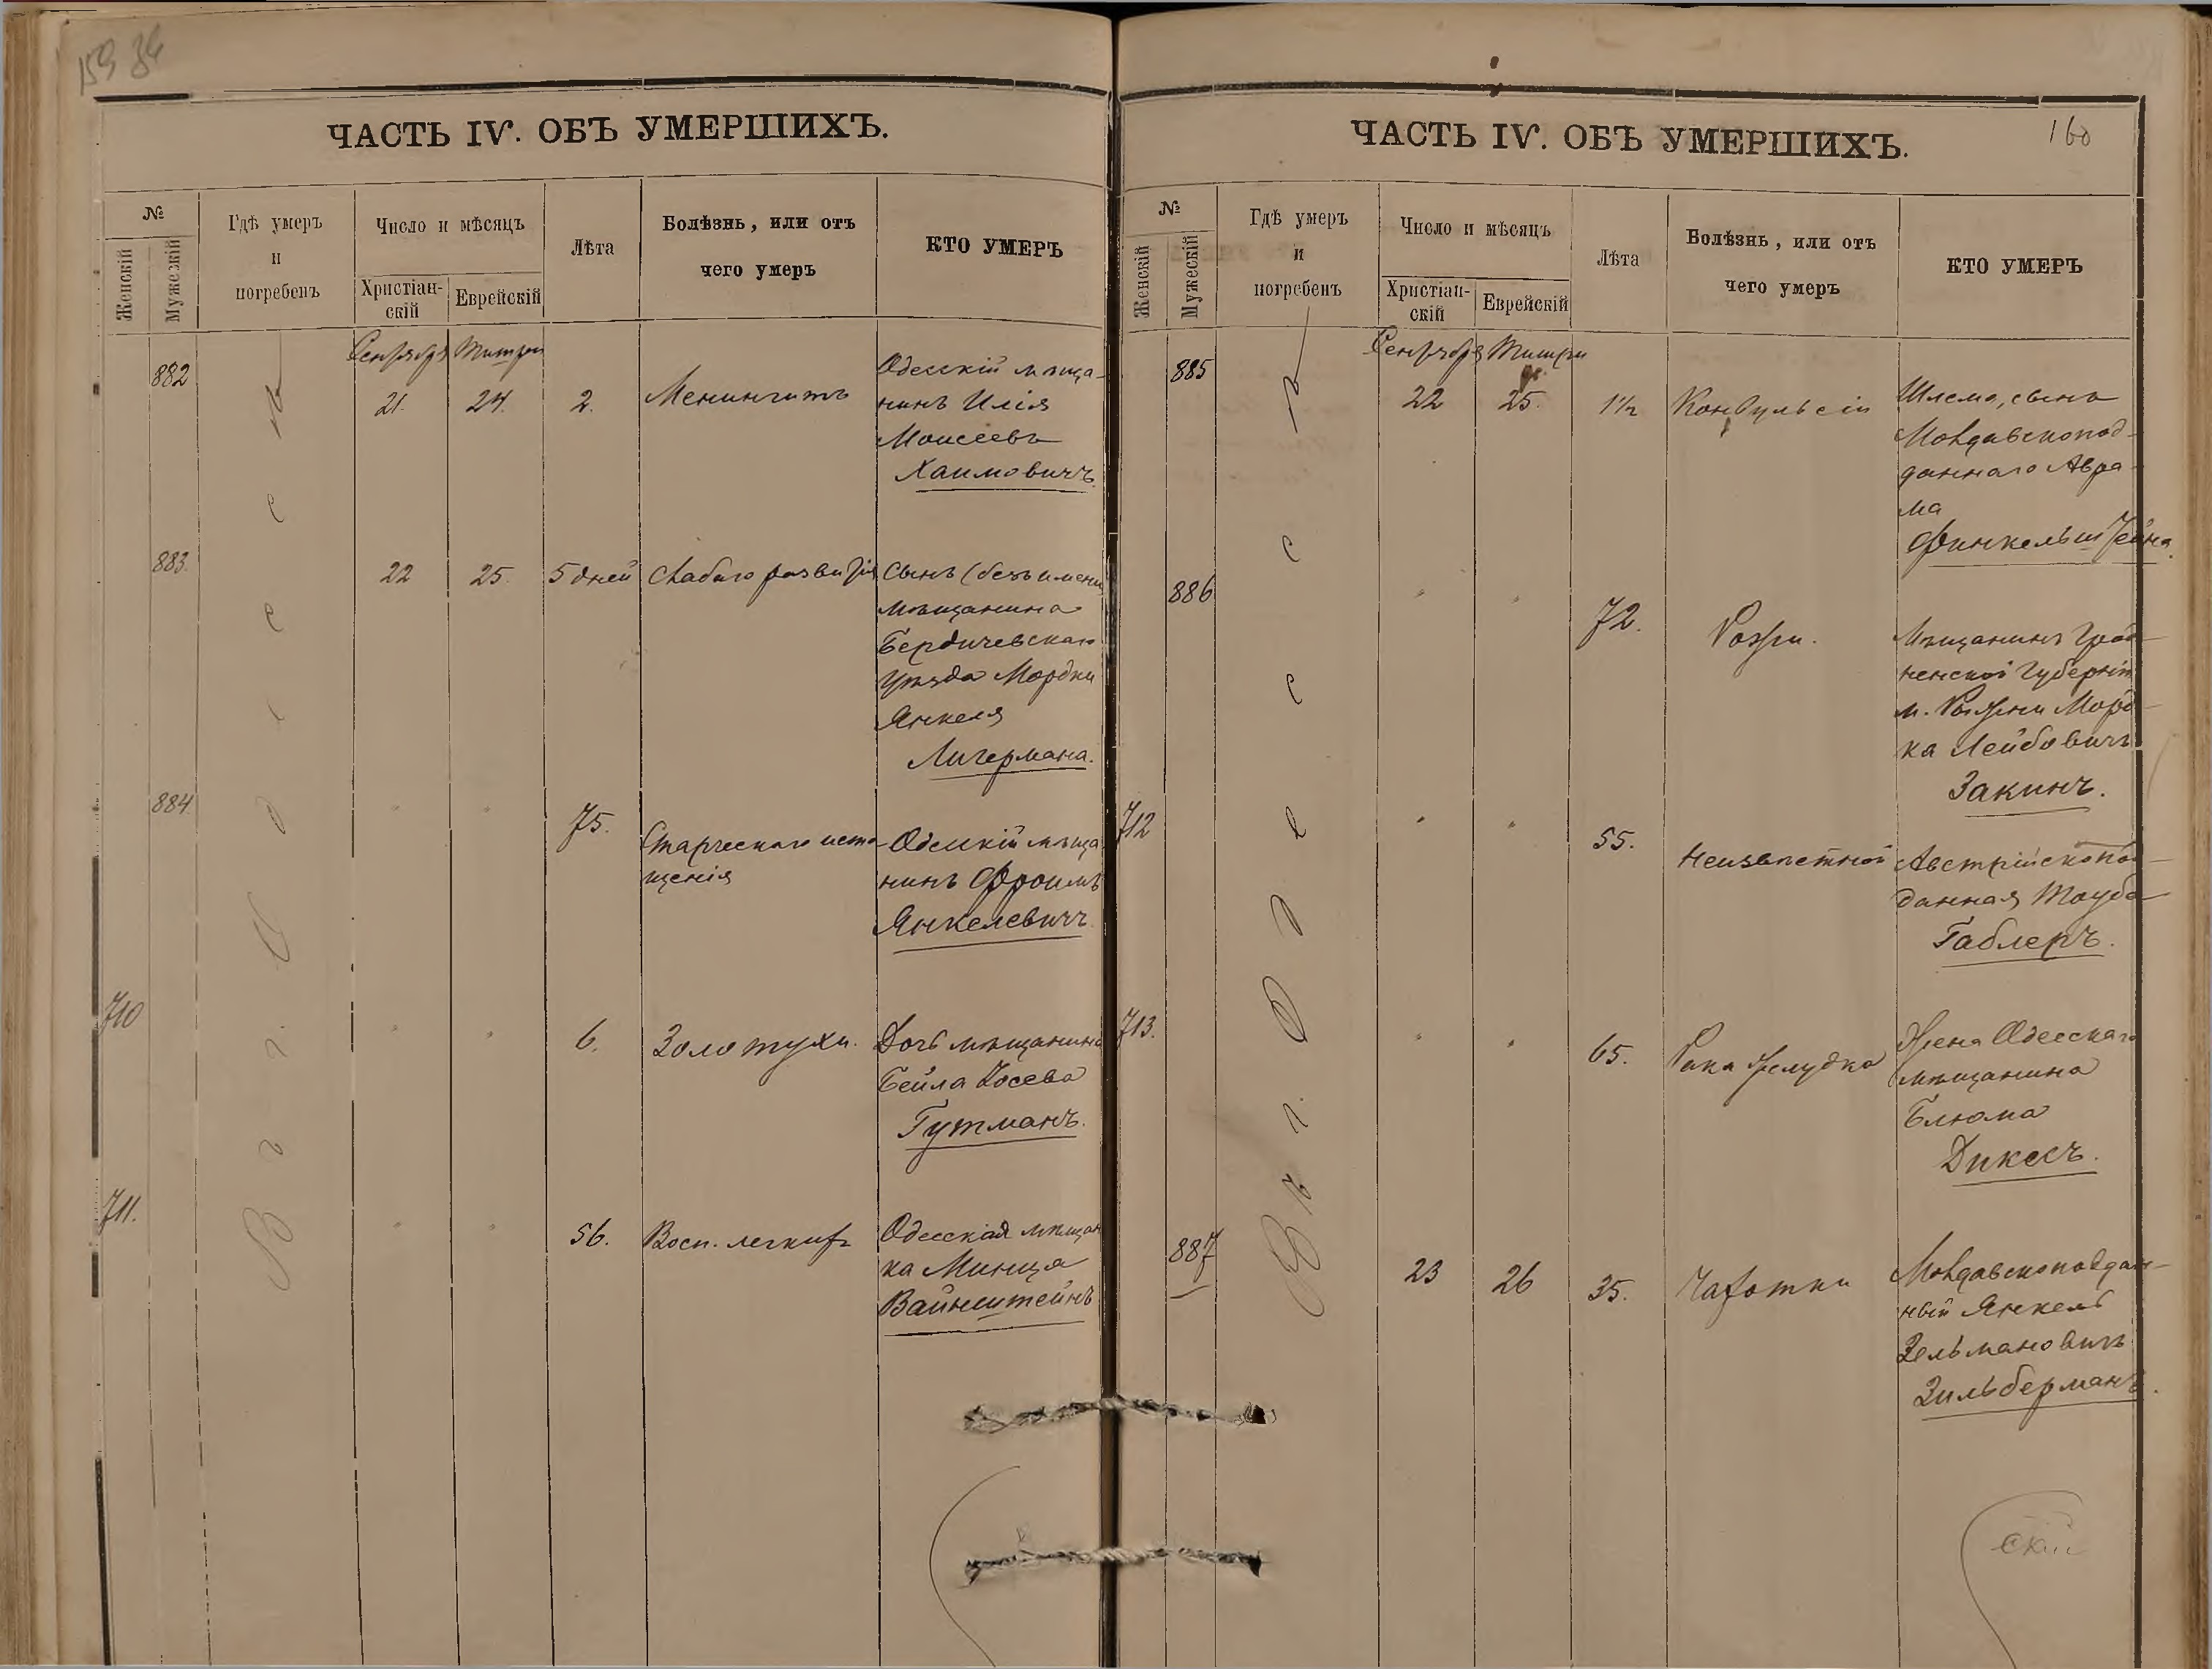 159 36
ЧАСТЬ IV. ОБЪ УМЕРШИХЪ.
№
Женскій
Мужескій
Гдѣ умеръ
и
погребенъ
Число и мѣсяцъ
Христіан-
скій
Еврейскій
Лѣта
Болѣзнь, или отъ
чего умеръ
КТО УМЕРЪ
Въ г. Одессѣ
Сентября Тишри
882
21. 24. 2. Менингитъ
Одесскій мѣща-
нинъ Илія
Моисеевъ
Хаимовичъ
883. 22 25. 5 дней Слабаго развитія Сынъ (безъ имени
мѣщанина
Бердичевскаго
уѣзда Мордки
Янкеля
Лигермана.
884. " " 75. Старческаго исто-
щенія
Одесскій мѣща
нинъ Фроимъ
Янкелевичъ
710 " " 6. Золотухи. Дочь мѣщанина
Бейла Іосева
Гутманъ.
711. " " 56. Восп. легкихъ Одесская мѣщан
ка Минця
Вайнштейнъ
ЧАСТЬ IV. ОБЪ УМЕРШИХЪ.
160
№
Женскій
Мужескій
Гдѣ умеръ
и
погребенъ
Число и мѣсяцъ
Христіан-
скій
Еврейскій
Лѣта
Болѣзнь, или отъ
чего умеръ
КТО УМЕРЪ
Въ г. Одессѣ
Сентября Тишри
885 22 25. 1½ Конвульсіи Шлема, сынъ
Молдавскопод-
даннаго Авра-
ма
Финкельштейна
886 " " 72. Рожи. Мѣщанинъ Грод-
ненской Губерніи
м. Рожани Морд-
ка Лейбовичъ
Закинъ.
712 " " 55. Неизвѣстной Австрійскопод-
данная Тауба
Габлеръ.
713. " " 65. Рака желудка Жена Одесскаго
мѣщанина
Блюма
Диксъ.
887 23 26 35. Чахотки Молдавскоподдан-
ный Янкель
Зельмановичъ
Зильберманъ.
скій